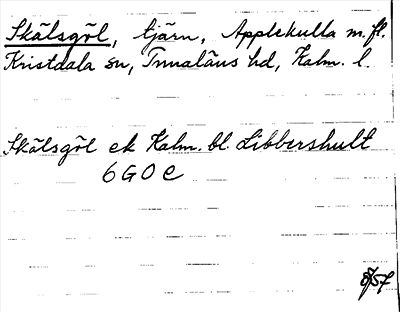 Skälsgöl, tjärn, Applekulla m. fl.
Kristdala sn, Tunaläns hd, Kalm. l.
Skälsgöl ek Kalm. bl. Libbershult
6 G 0 c
8/57